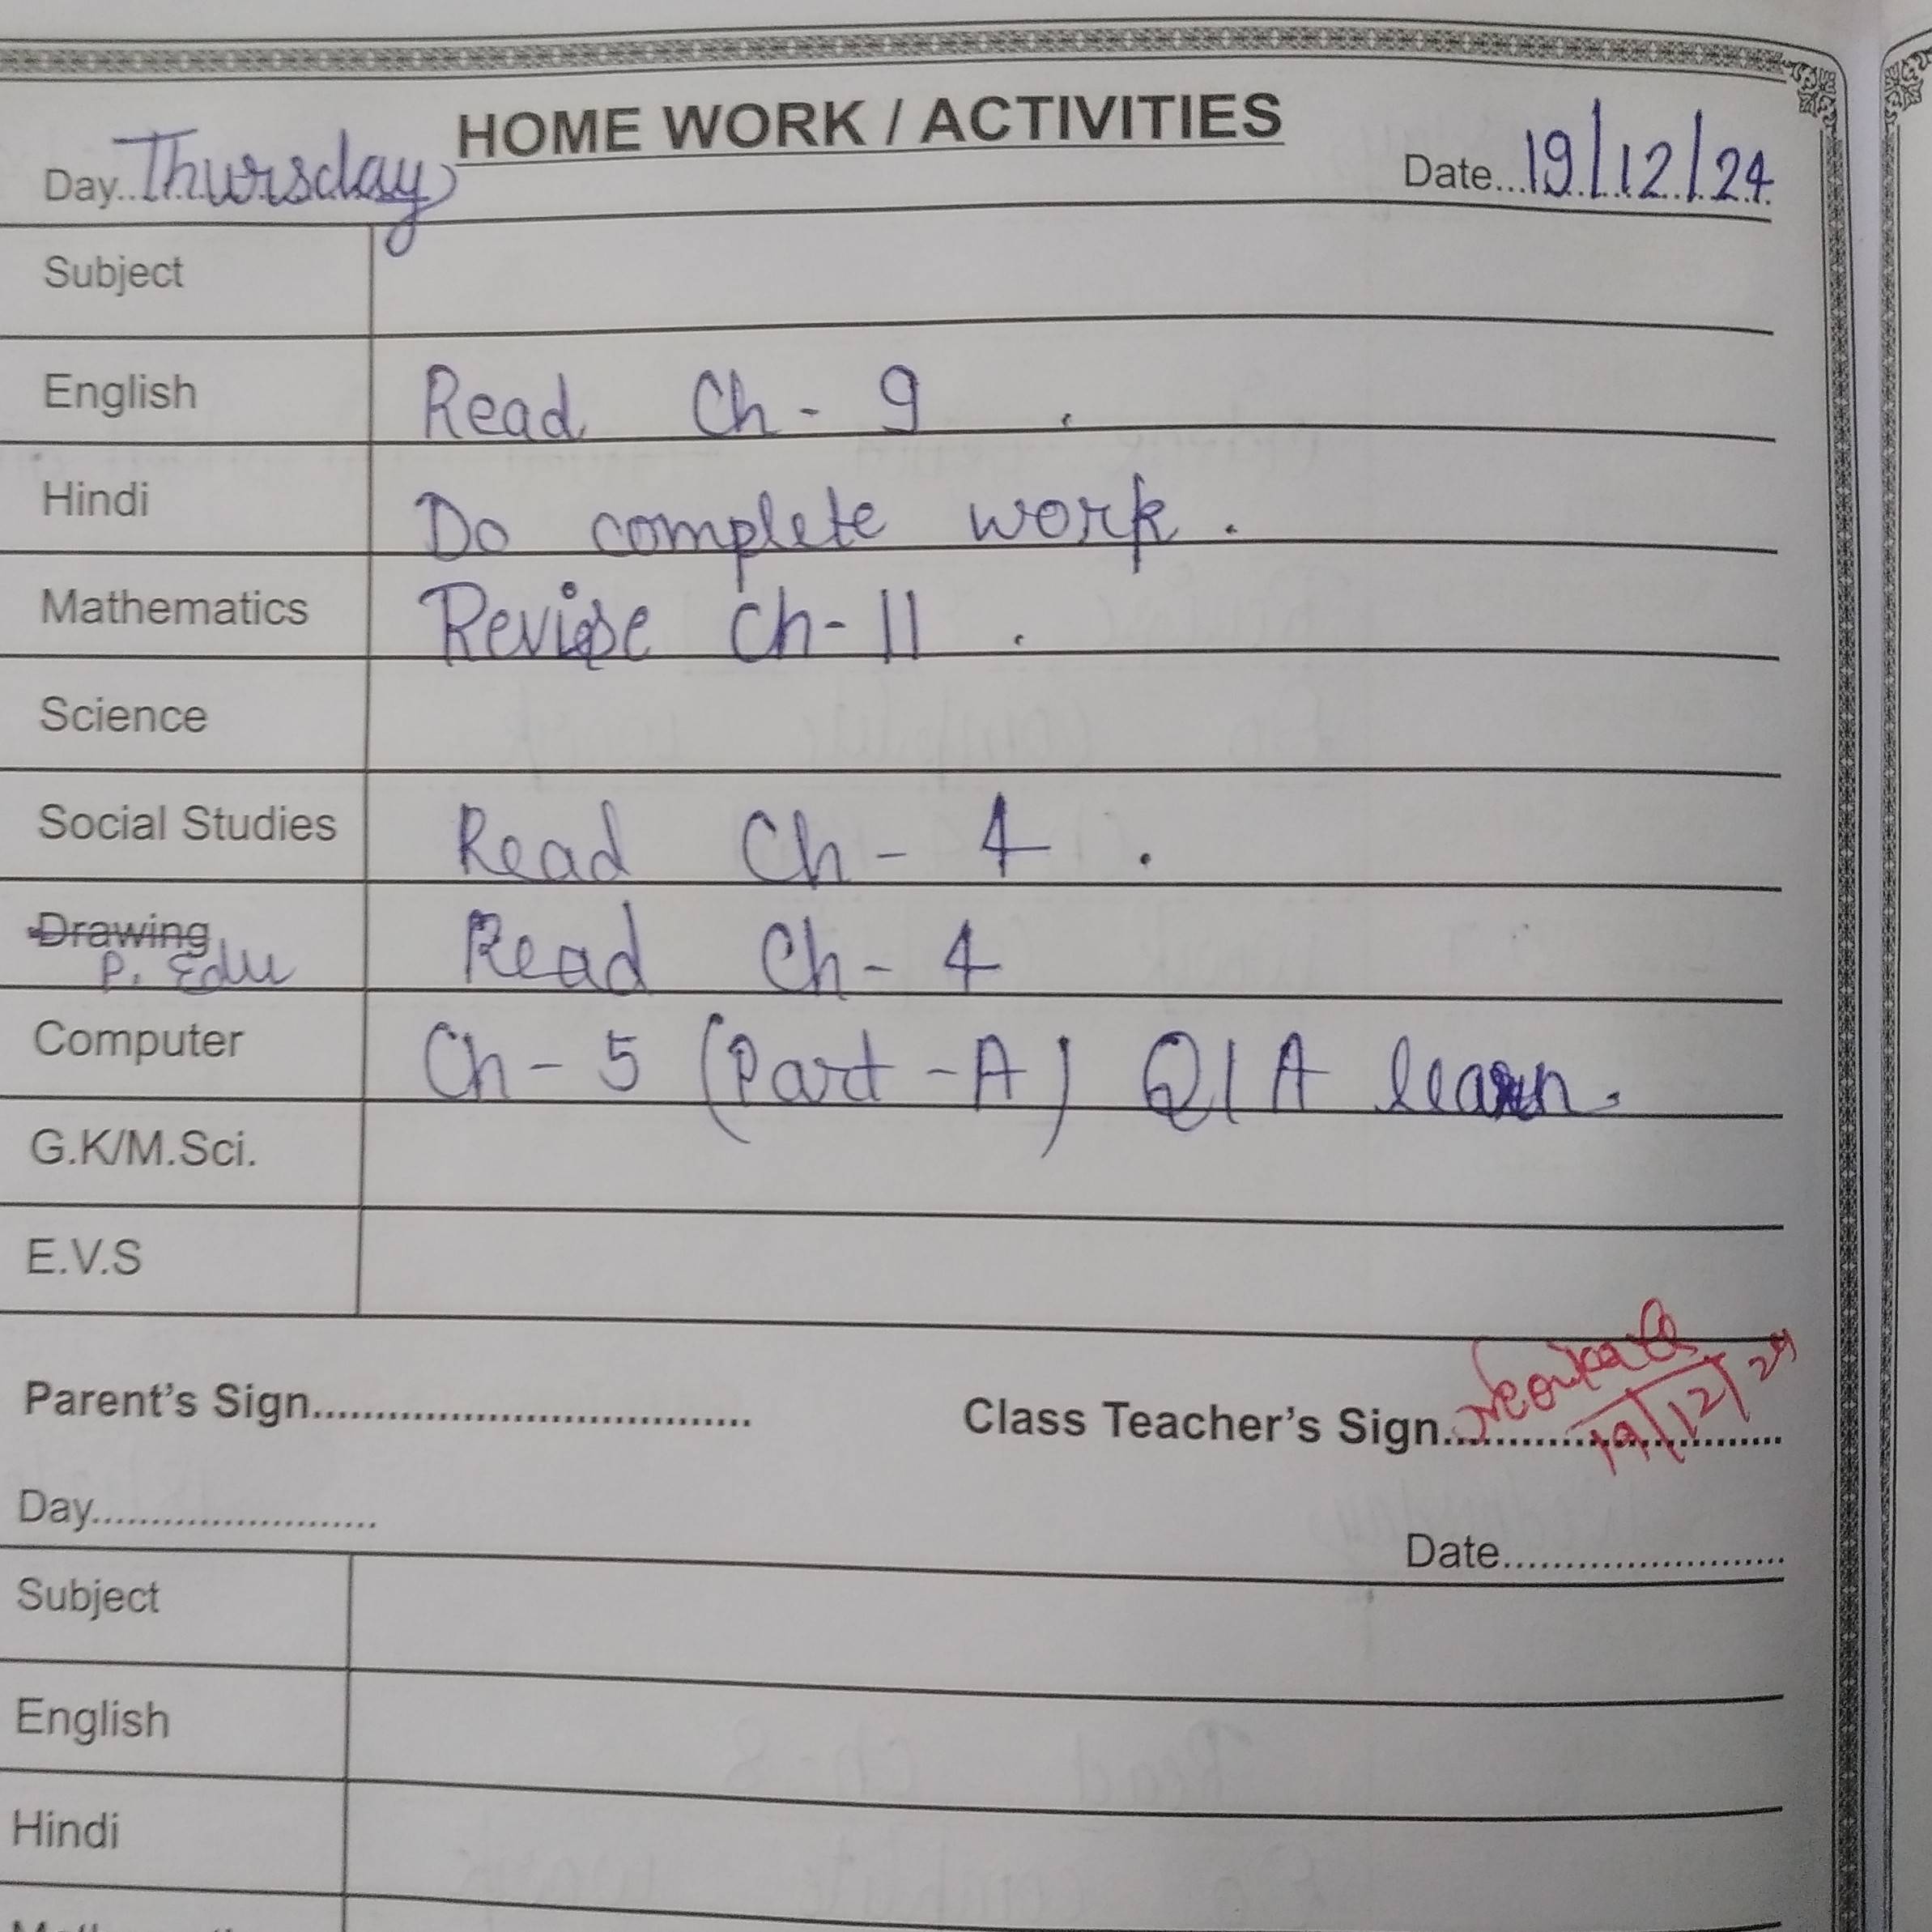 HOME WORK / ACTIVITIES
Day..Thursday Date...19/12/24
Subject
English Read Ch - 9 .
Hindi Do complete work .
Mathematics Revise Ch - 11 .
Science
Social Studies Read Ch - 4 .
Drawing
P. Edu Read Ch - 4
Computer Ch - 5 (Part - A) Q/A learn.
G.K/M.Sci.
E.V.S
Parent's Sign.................................... Class Teacher's Sign............................
19/12/24
Day........................ Date........................
Subject
English
Hindi